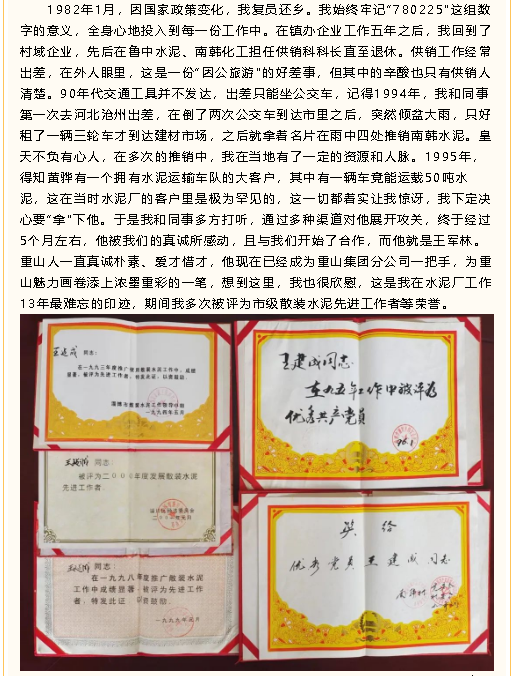 1982年1月，因国家政策变化，我复员还乡。我始终牢记“780225”这组数
字的意义，全身心地投入到每一份工作中。在镇办企业工作五年之后，我回到了
村域企业，先后在鲁中水泥、南韩化工担任供销科科长直至退休。供销工作经常
出差，在外人眼里，这是一份“因公旅游”的好差事，但其中的辛酸也只有供销人
清楚。90年代交通工具并不发达，出差只能坐公交车，记得1994年，我和同事
第一次去河北沧州出差，在倒了两次公交车到达市里之后，突然倾盆大雨，只好
租了一辆三轮车才到达建材市场，之后就拿着名片在雨中四处推销南韩水泥。皇
天不负有心人，在多次的推销中，我在当地有了一定的资源和人脉。1995年，
得知黄骅有一个拥有水泥运输车队的大客户，其中有一辆车竟能运载50吨水
泥，这在当时水泥厂的客户里是极为罕见的，这一切都着实让我惊讶，我下定决
心要“拿”下他。于是我和同事多方打听，通过多种渠道对他展开攻关，终于经过
5个月左右，他被我们的真诚所感动，且与我们开始了合作，而他就是王军林。
重山人一直真诚朴素、爱才惜才，他现在已经成为重山集团分公司一把手，为重
山魅力画卷添上浓墨重彩的一笔，想到这里，我也很欣慰，这是我在水泥厂工作
13年最难忘的印迹，期间我多次被评为市级散装水泥先进工作者等荣誉。
王建成 同志：
在一九九三年度推广散装水泥工作中，成绩
显著，被评为先进工作者，特发此证，以资鼓励。
一九九四年五月
同志：
被评为二000年度发展散装水泥
先进工作者
同志：
在一九九八年度推广散装水泥
工作中成绩显著，被评为先进工作
者，特发此证，以资鼓励。
一九九九年元月
王建成同志
在九五年工作中被评为
优秀共产党员
96.1
奖给
优秀党员王建成同志